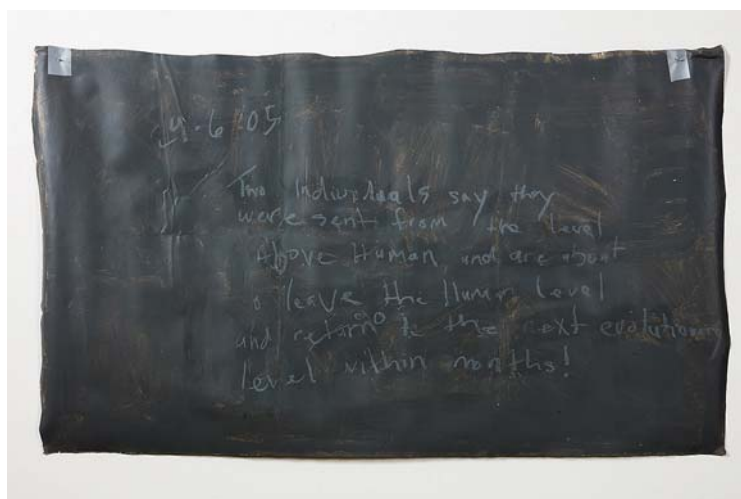 4-6 05
Two Individuals say they
were sent from the level
Above Human, and are about
o leave the Human Level
and return to the next evolutionary
level within months!